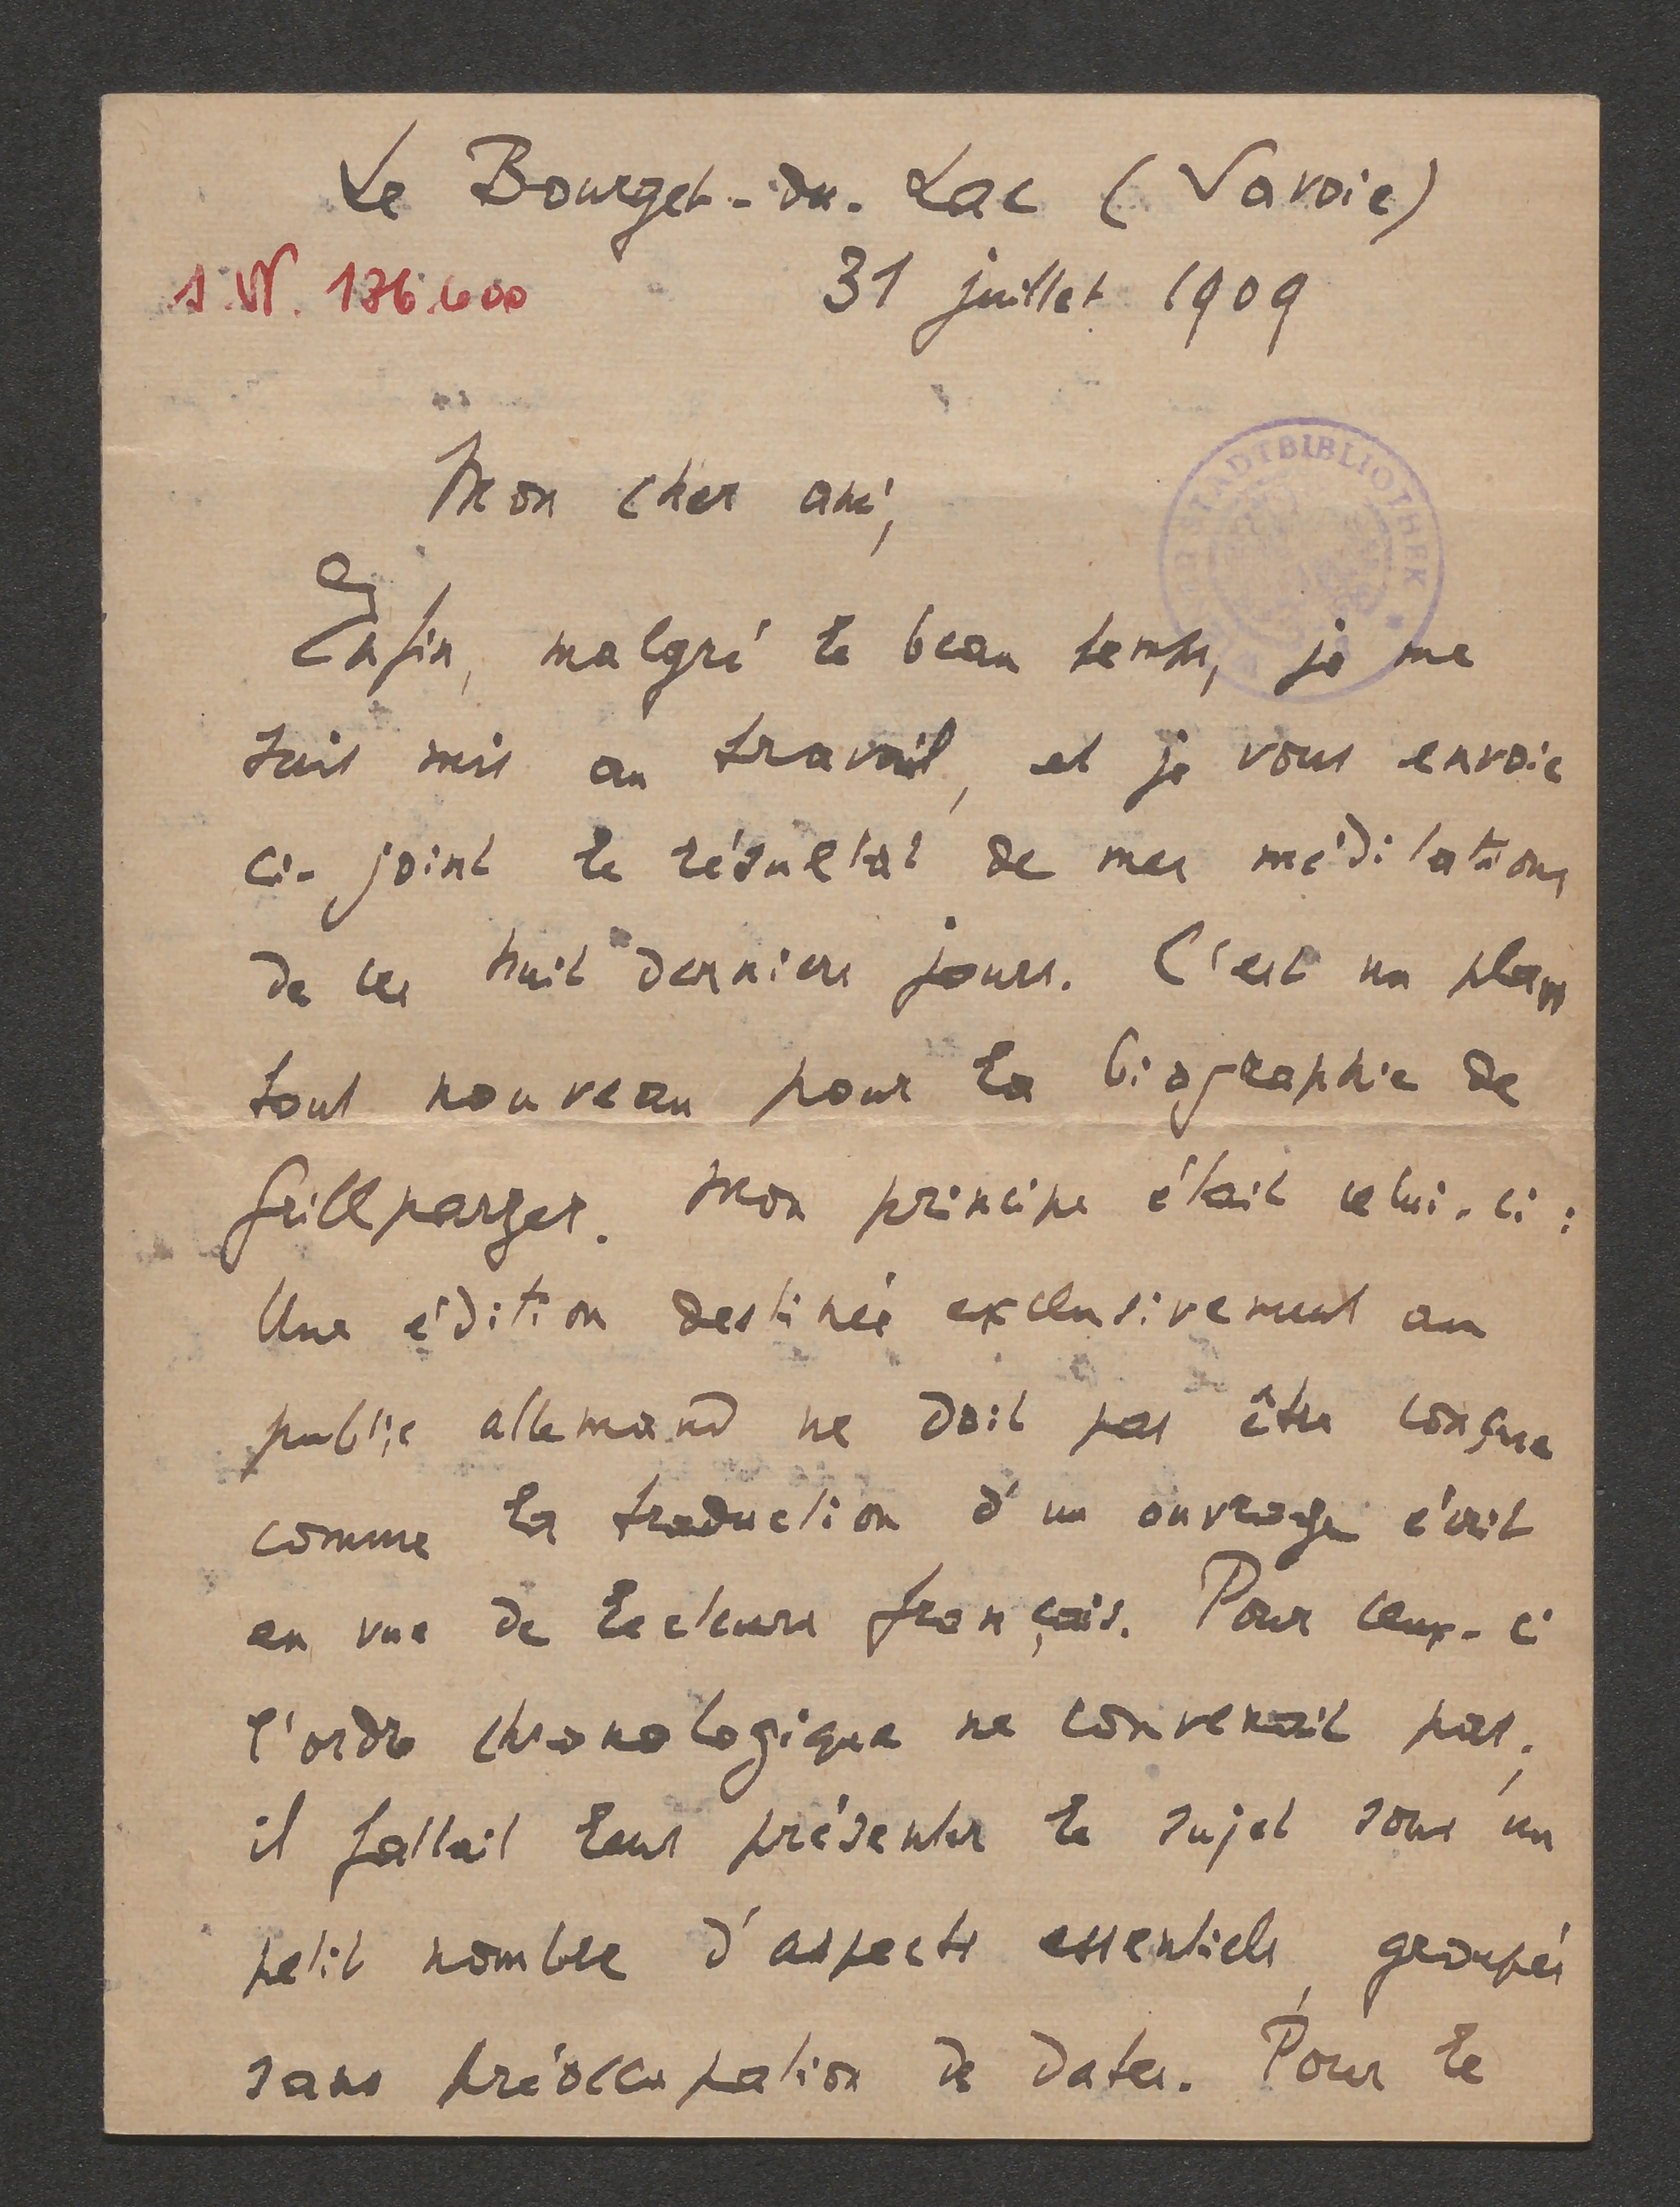 Le Bourget-du-Lac (Savoie)
I.N. 136.600
31 juillet 1909
STADTBIBLIOTHEK
Mon cher ami,
Enfin, malgré le beau temps, je me
suis mis au travail, et je vous envoie
ci-joint le résultat de mes méditations
de ces huit derniers jours. C'est un plan
tout nouveau pour la biographie de
Grillparzer. Mon principe était celui-ci :
Une édition destinée exclusivement au
public allemand ne doit pas être conçue
comme la traduction d'un ouvrage écrit
en vue de lecteurs français. Pour ceux-ci
l'ordre chronologique ne convenait pas ;
il fallait leur présenter le sujet sous un
petit nombre d'aspects essentiels, groupés
sans préoccupation de dates. Pour le